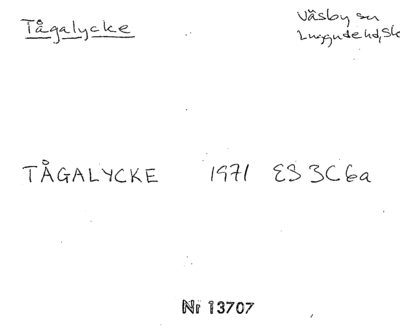 Tågalycke
Väsby sn
Luggude hd, Sk
TÅGALYCKE 1971 ES 3C6a
Nr 13707